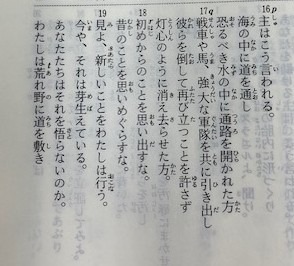 16 主はこう言われる。
海の中に道を通し
恐るべき水の中に通路を開かれた方
17 戦車や馬、強大な軍隊を共に引き出し
彼らを倒して再び立つことを許さず
灯心のように消え去らせた方。
18 初めからのことを思い出すな。
昔のことを思いめぐらすな。
19 見よ、新しいことをわたしは行う。
今や、それは芽生えている。
あなたたちはそれを悟らないのか。
わたしは荒れ野に道を敷き